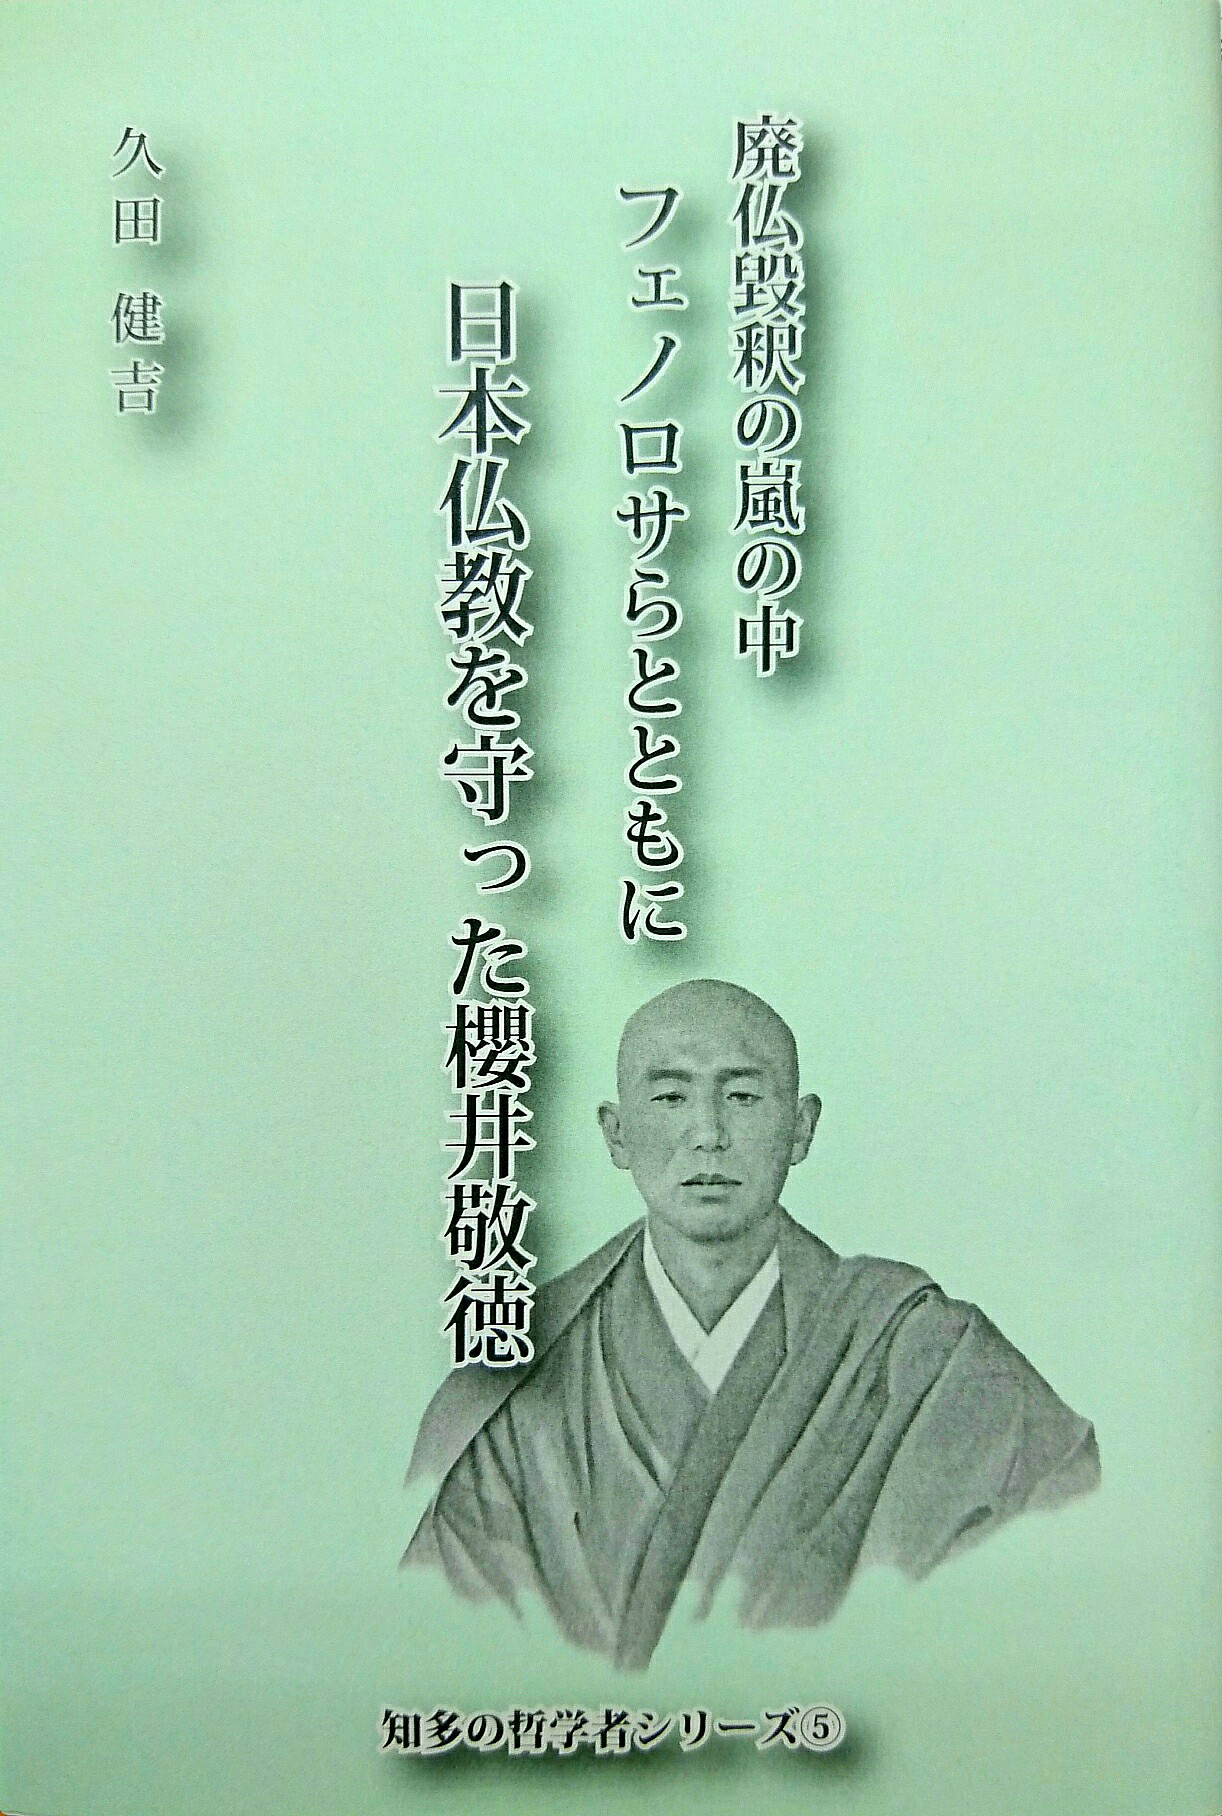 廃仏毀釈の嵐の中
フェノロサらとともに
日本仏教を守った櫻井敬徳
久田 健吉
知多の哲学者シリーズ⑤